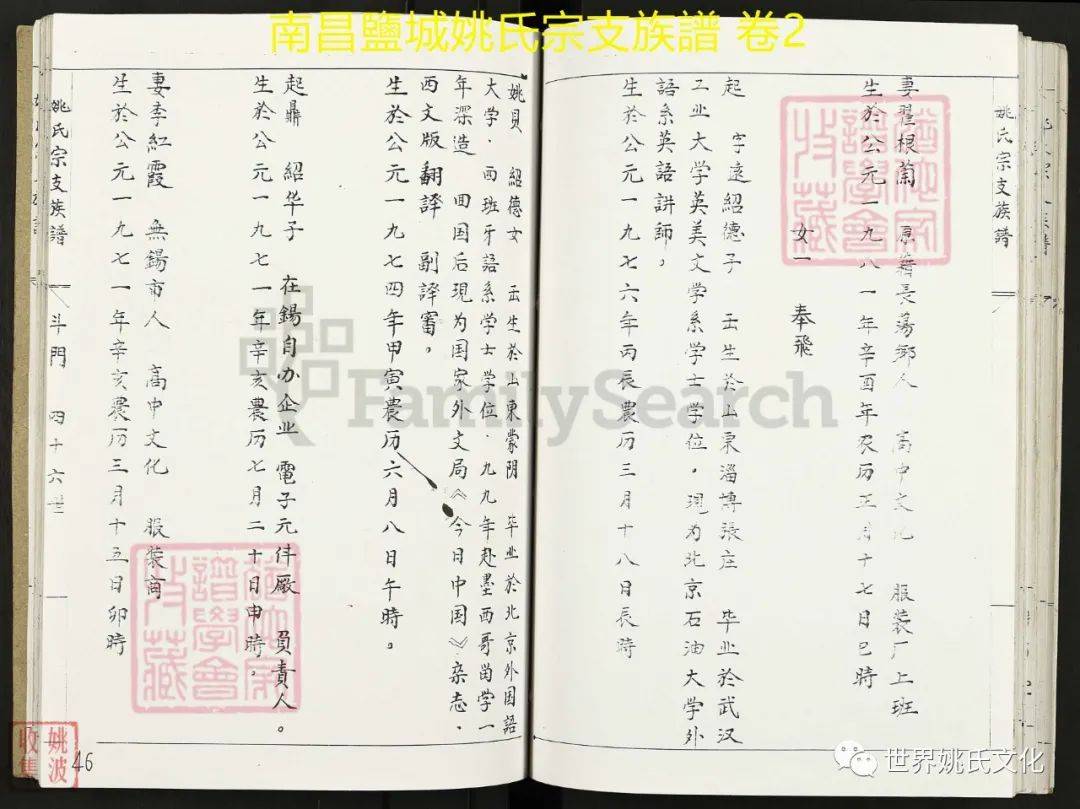 南昌鹽城姚氏宗支族譜 卷2
姚氏宗支族譜
妻翟根蘭 原籍長蕩鄉人 高中文化 服装厂上班
生於公元一九八一年辛酉年农历正月十七日巳時
女一 奉飛
起 字遠紹德子 壬生於山東淄博張庄 毕业於武汉
工业大学英美文学系学士学位。現为北京石油大学外
語系英語講師。
生於公元一九七六年丙辰農历三月十八日辰時
姚貝 紹德女 壬生於山東蒙阴 毕业於北京外国語
大学．西班牙語系学士学位．九九年赴墨西哥留学一
年深造 回国后現为国家外文局《今日中国》杂志．
西文版翻譯 副譯審。
生於公元一九七四年甲寅農历六月八日午時。
起鼎 紹华子 在錫自办企业 電子元件厰 負責人。
生於公元一九七一年辛亥農历七月二十日申時。
妻李紅霞 無錫市人 高中文化 服装商
生於公元一九七一年辛亥農历三月十五日卯時
姚氏宗支族譜 斗門 四十六世
46
FamilySearch
譜學會
收藏
譜學會
收藏
姚波
收集
世界姚氏文化